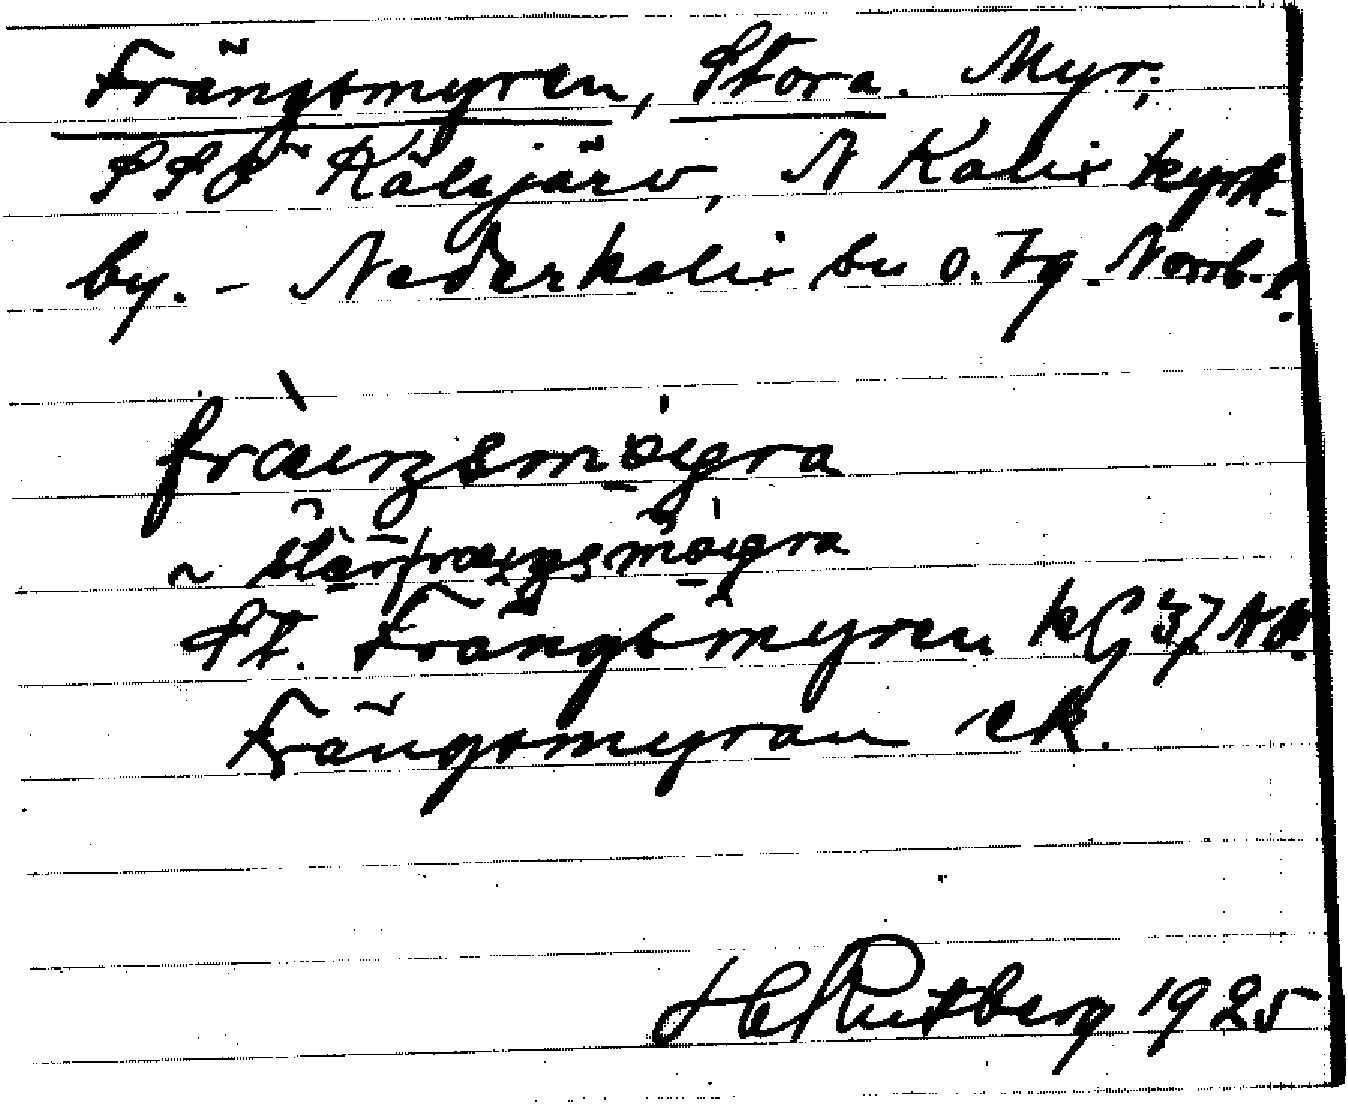 Frängsmyren, Stora. Myr,
SSÖ Kälsjärv, N Kalix kyrk-
by. - Nederkalix sn o. tg. Norrb. l.
St. Frängsmyren kG 37 NO.
Frängsmyran ek.
H Rutberg 1925